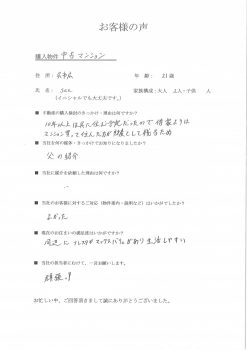 お客様の声
購入物件 中古マンション
住 所： 年 齢： 21歳
氏 名： S.n 家族構成：大人 2人・子供 人
(イニシャルでも大丈夫です。)
■ 不動産の購入検討のきっかけ・理由は何ですか？
10年以上は共に住む予定だったので 借家よりは
マンション買って住んだ方が財産として残るため
■ 当社を何の媒体・きっかけでお知りになりましたか？
父の紹介
■ 当社に媒介を依頼した理由は何ですか？
■ 当社のお客様に対するご対応（物件案内・説明など）はいかがでしたか？
よかった
■ 現在のお住まいの満足度はいかがですか？
周辺に フレスタやマックスバリューがあり生活しやすい
■ 当社の担当者にむけて、一言お願いします。
頑張って!!
お忙しい中、ご回答頂きまして誠にありがとうございました。